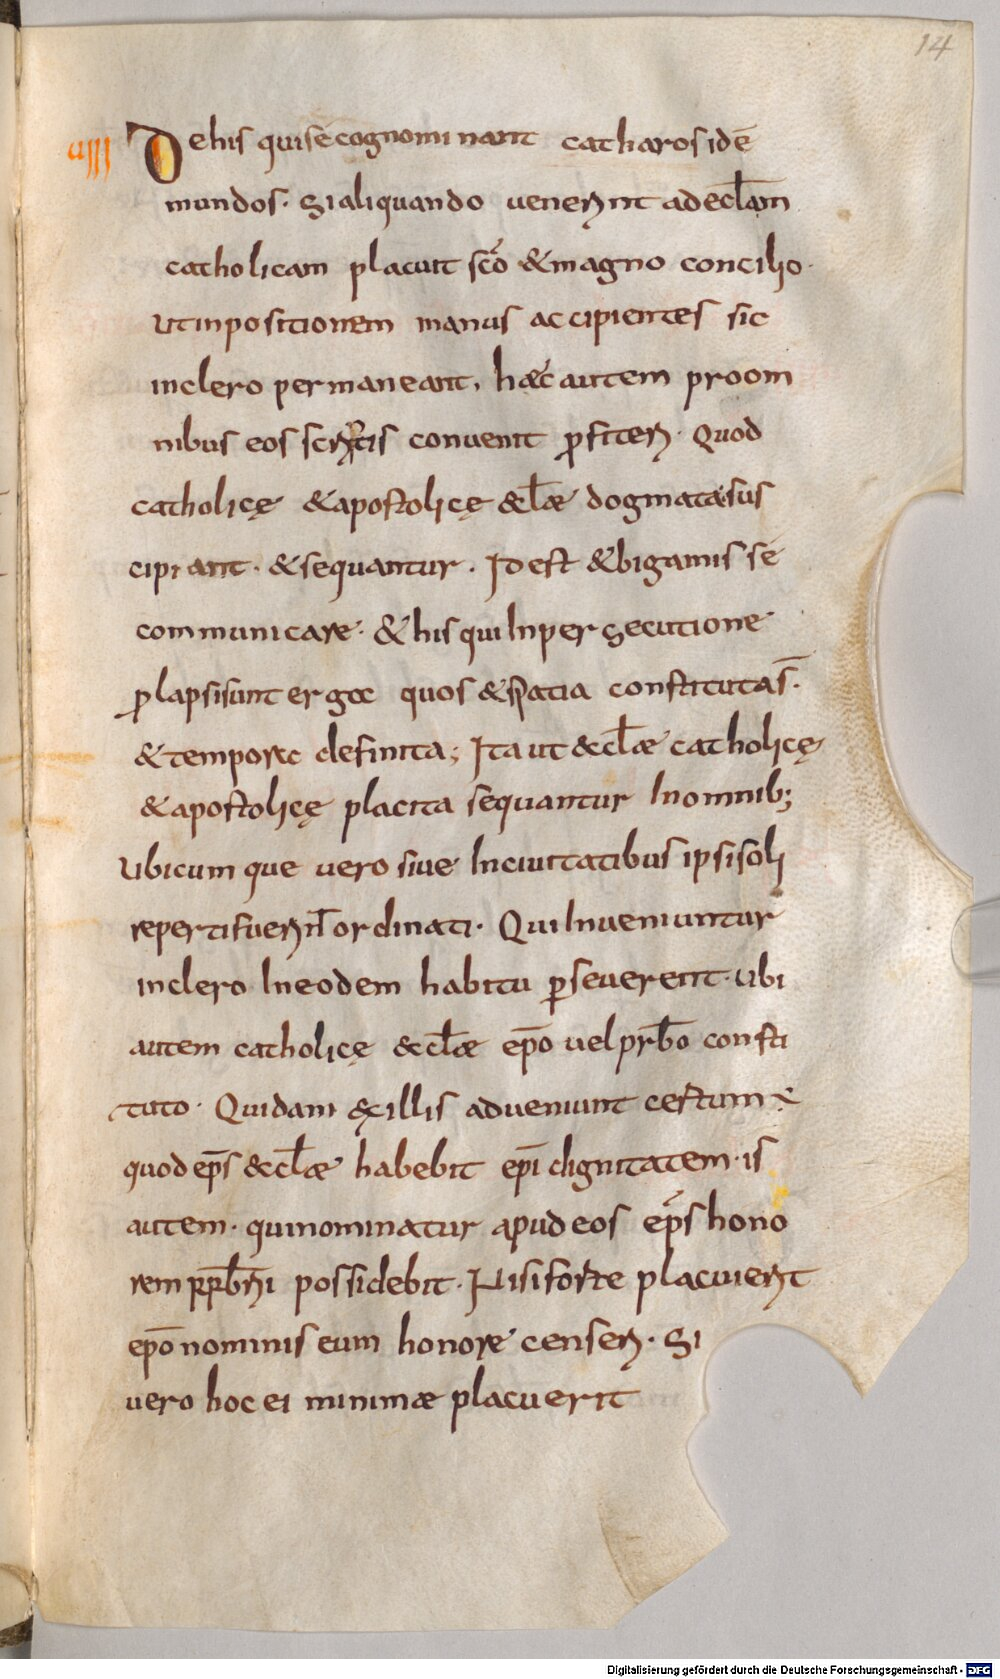 14
uIII De his qui se cognominant catharos id ē
mundos. Si aliquando uenerint ad eclam̄
catholicam placuit sc̄o & magno concilio.
ut inpositionem manus accipientes sic
in clero permaneant, haec autem pro om
nibus eos scriptis conuenit ꝓfiteri. Quod
catholicę & apostolicę &cl̄ae dogmata sus
cipiant. & sequantur. Id est & bigamis se
communicare. & his qui In persecutione
prolapsi sunt erga quos & spatia constituta s̄.
& tempora definita; Ita ut &cl̄ae catholicę
& apostolicę placita sequantur In omnib;
Ubicumque uero siue In ciuitatibus ipsi soli
reperti fuerīt ordinati. Qui Inueniuntur
in clero In eodem habitu ꝑseuerent. ubi
autem catholicę &cl̄ae ep̄o uel prb̄o consti
tuto. Quidam ex illis adueniunt certum ē
quod ep̄s &cl̄ae habebit ep̄i dignitatem. is
autem. qui nominatur apud eos ep̄s hono
rem prb̄ri possidebit. Nisi forte placuerit
ep̄o nominis eum honore censeri. Si
uero hoc ei minimae placuerit
Digitalisierung gefördert durch die Deutsche Forschungsgemeinschaft - DFG